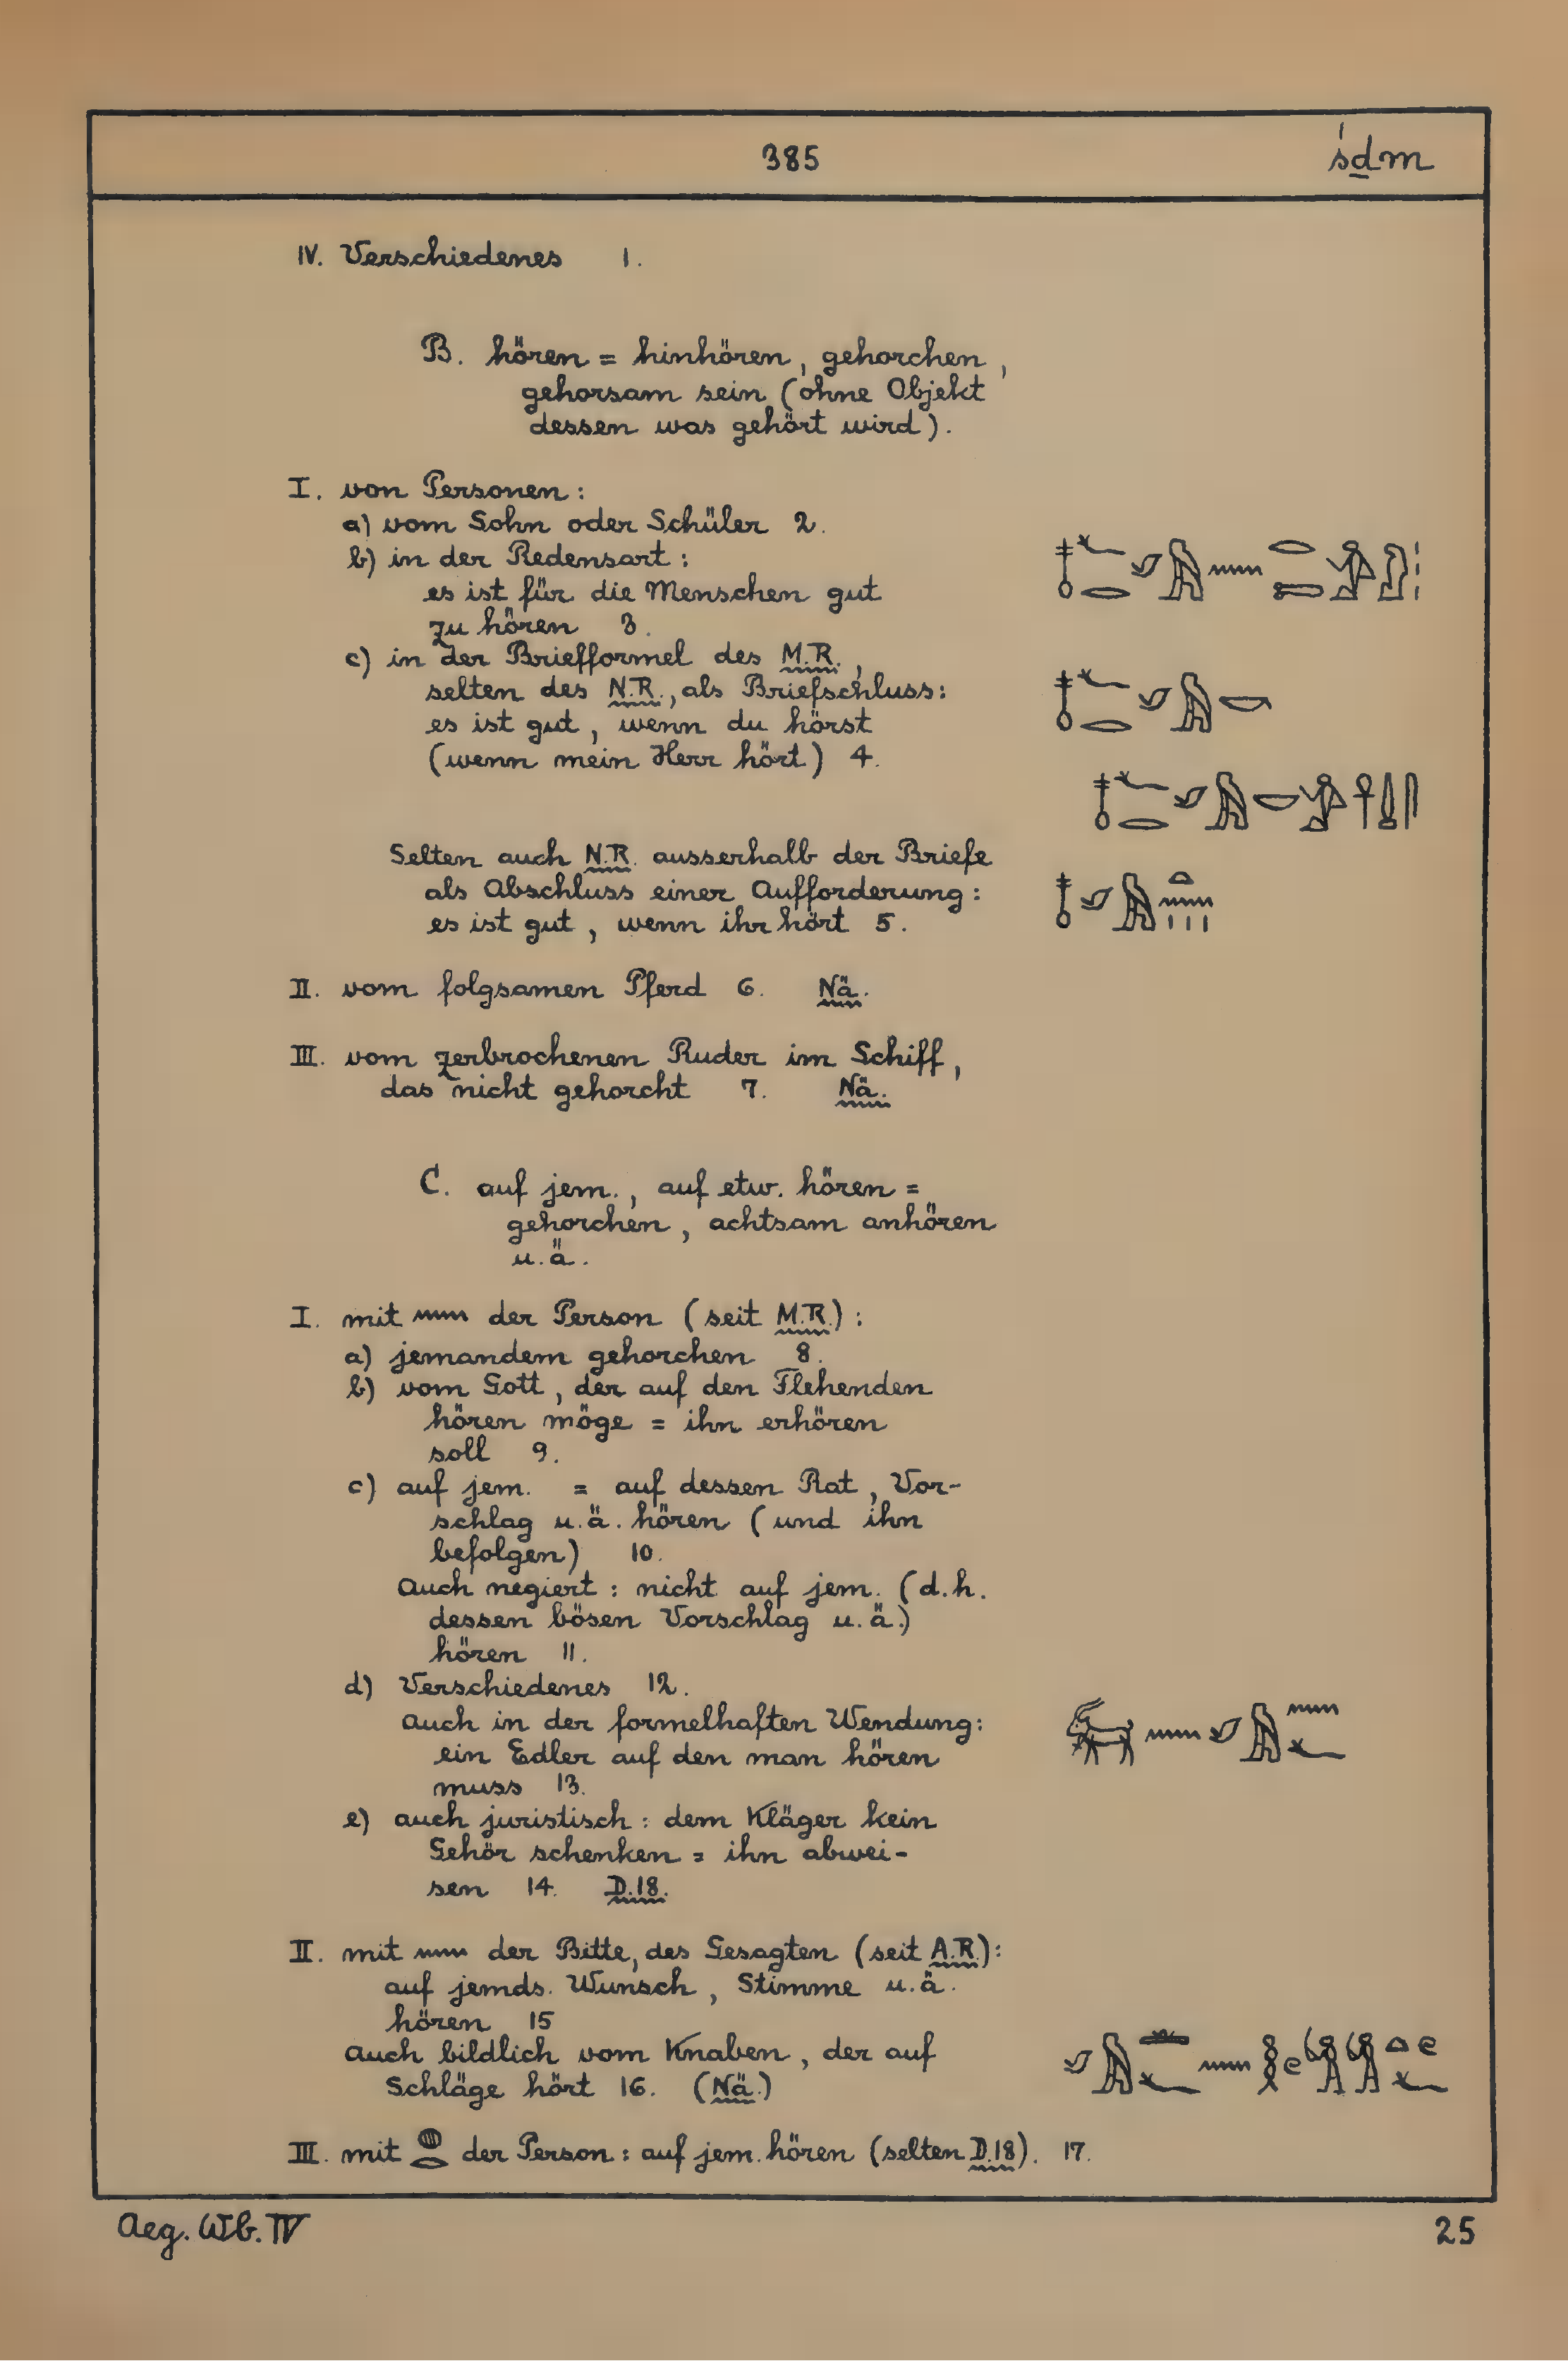 385
śḏm
IV. Verschiedenes 1.
B. hören = hinhören, gehorchen,
gehorsam sein (ohne Objekt
dessen was gehört wird).
I. von Personen:
a) vom Sohn oder Schüler 2.
b) in der Redensart:
es ist für die Menschen gut
zu hören 3.
c) in der Briefformel des M.R.,
selten des N.R., als Briefschluss:
es ist gut, wenn du hörst
(wenn mein Herr hört) 4.
Selten auch N.R. ausserhalb der Briefe
als Abschluss einer Aufforderung:
es ist gut, wenn ihr hört 5.
II. vom folgsamen Pferd 6. Nä.
III. vom zerbrochenen Ruder im Schiff,
das nicht gehorcht 7. Nä.
C. auf jem., auf etw. hören =
gehorchen, achtsam anhören
u.ä.
I. mit 𓈖 der Person (seit M.R.):
a) jemandem gehorchen 8.
b) vom Gott, der auf den Flehenden
hören möge = ihn erhören
soll 9.
c) auf jem. = auf dessen Rat, Vor-
schlag u.ä. hören (und ihn
befolgen) 10.
Auch negiert: nicht auf jem. (d.h.
dessen bösen Vorschlag u.ä.)
hören 11.
d) Verschiedenes 12.
Auch in der formelhaften Wendung:
ein Edler auf den man hören
muss 13.
e) auch juristisch: dem Kläger kein
Gehör schenken = ihn abwei-
sen 14. D.18.
II. mit 𓈖 der Bitte, des Gesagten (seit A.R.):
auf jemds. Wunsch, Stimme u.ä.
hören 15
Auch bildlich vom Knaben, der auf
Schläge hört 16. (Nä.)
III. mit 𓐍𓂋 der Person: auf jem. hören (selten D.18). 17.
Aeg. Wb. IV
25